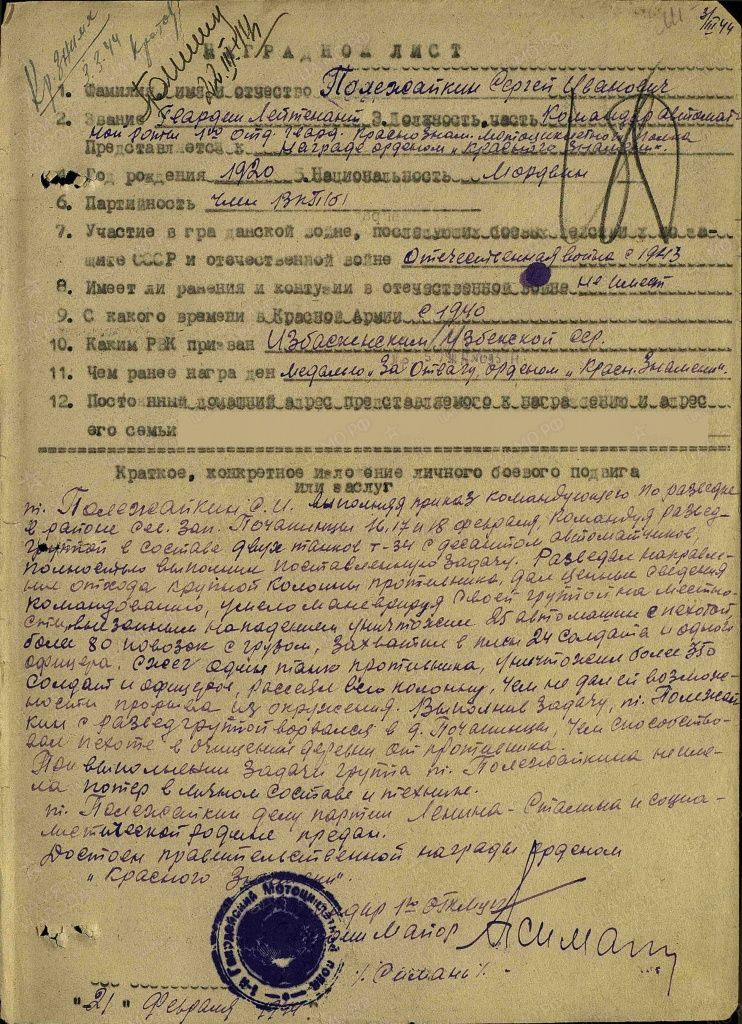 3/III 44
Кр. Знамя
3.3.44
22.III.44
НАГРАДНОЙ ЛИСТ
1. Фамилия, имя и отчество Полежайкин Сергей Иванович
2. Звание Гвардии Лейтенант 3. Должность, часть Командир автомат-
ной роты 1го отд. гвард. Краснознам. мотоциклетного полка
Представляется к награде орденом „Красного Знамени".
4. Год рождения 1920 5. Национальность Мордвин
6. Партийность член ВКП/б/
7. Участие в гражданской войне, последующих боевых действиях по за-
щите СССР и отечественной войне Отечественная война с 1943
8. Имеет ли ранения и контузии в отечественной войне не имеет
9. С какого времени в Красной Армии с 1940
10. Каким РВК призван Избаскенским Узбекской сср.
11. Чем ранее награжден медалью „За Отвагу, орденом „Красн. Знамени".
12. Постоянный домашний адрес представляемого к награждению и адрес
его семьи
Краткое, конкретное изложение личного боевого подвига
или заслуг
т. Полежайкин С. И. выполняя приказ командующего по разведке
в районе сев. зап. Почапинцы 16, 17 и 18 февраля, командуя развед-
группой в составе двух танков т-34 с десантом автоматчиков,
полностью выполнил поставленную задачу. Разведал направле-
ние отхода крупной колонны противника, дал ценные сведения
командованию, умело маневрируя своей группой на местно-
сти, внезапным нападением уничтожил 25 автомашин с пехотой
более 80 повозок с грузом, захватил в плен 24 солдата и одного
офицера. Сжег один танк противника, уничтожил более 350
солдат и офицеров, рассеял всю колонну, чем не дал ей возмож-
ности прорыва из окружения. Выполнив задачу, т. Полежай-
кин с разведгруппой ворвался в д. Почапинцы, чем способство-
вал пехоте в очищении деревни от противника.
При выполнении задачи группа т. Полежайкина не име-
ла потер в личном составе и технике.
т. Полежайкин делу партии Ленина - Сталина и социа-
листической родине предан.
Достоен правительственной награды орденом
„Красного Знамени".
Гвардейский Мотоциклетный полк
дир 1го
дии Майор
"21" Февраля 1944